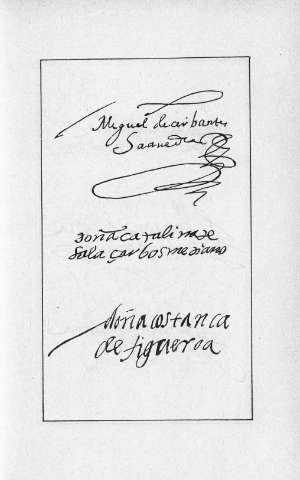 Miguel decerbantes
Saauedra
doña catalina de
salaçar bosmediano
doña costança
de figueroa